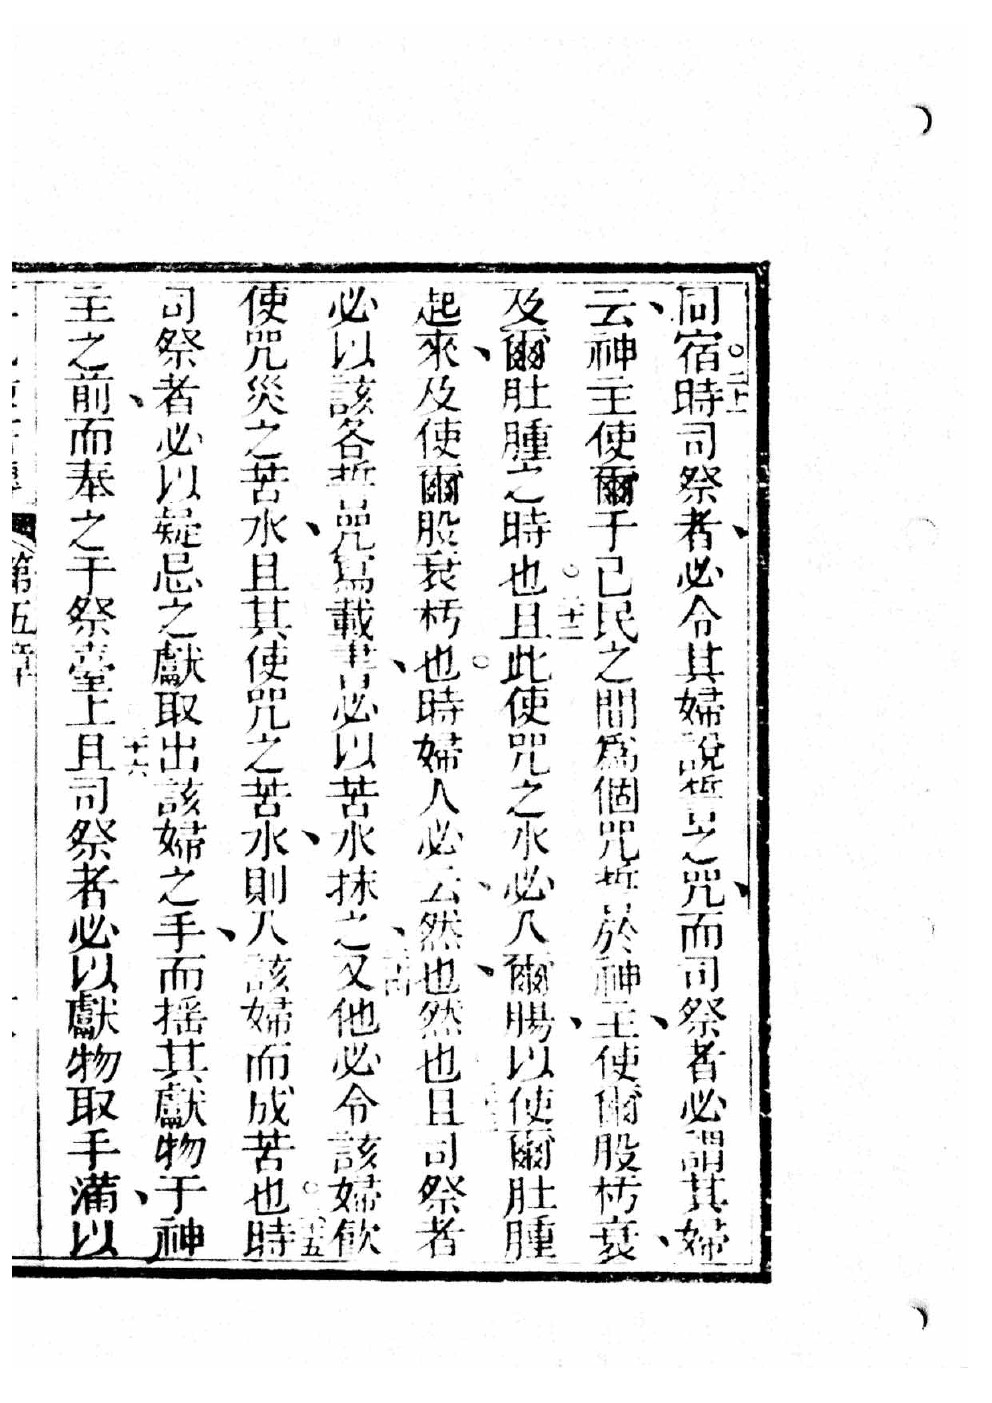 同宿時○二十司祭者、必令其婦說誓之咒、而司祭者必謂其婦
云、神主使爾于己民之間爲個咒誓於神主、使爾股朽衰、
及爾肚腫之時也○二十二且此使咒之水必入爾腸、以使爾肚腫
起來、及使爾股衰朽也○時婦人必云、然也、然也且司祭者
必以該各誓咒寫載書、必以苦水抹之、又他必令該婦飲
使咒災之苦水、且其使咒之苦水、則入該婦而成苦也○時
司祭者必以疑忌之獻取出該婦之手、而摇其獻物于神
主之前、而奉之于祭臺上十六且司祭者必以獻物取手滿、以
第五章